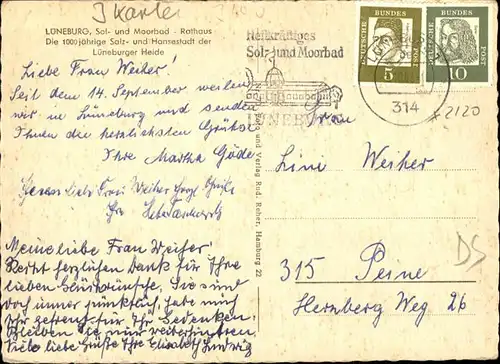 J Karte
LÜNEBURG, Sol- und Moorbad - Rathaus
Die 1000jährige Salz- und Hansestadt der
Lüneburger Heide
Liebe Frau Weiher!
Seit dem 14. September weilen
wir in Lüneburg und senden
Ihnen die herzlichsten Grüße
Ihre Martha Göde
Frau Weiher
Meine liebe Frau Weiher!
Recht herzlichen Dank für Ihre
lieben Glückwünsche. Sie sind
doch immer pünktlich, habe mich
sehr gefreut für Ihr Gedenken.
Schreiben Sie nur weiterhin
Viele liebe Grüße Ihre Elisabeth Ludwig
Heilkräftiges
Sol- und Moorbad
LÜNEBURG
314
DEUTSCHE BUNDESPOST
5
DEUTSCHE BUNDESPOST
10
2120
Foto und Verlag Rud. Reher, Hamburg 22
Frau
Lini Weiher
315 Peine
Hernberg Weg 26
DS